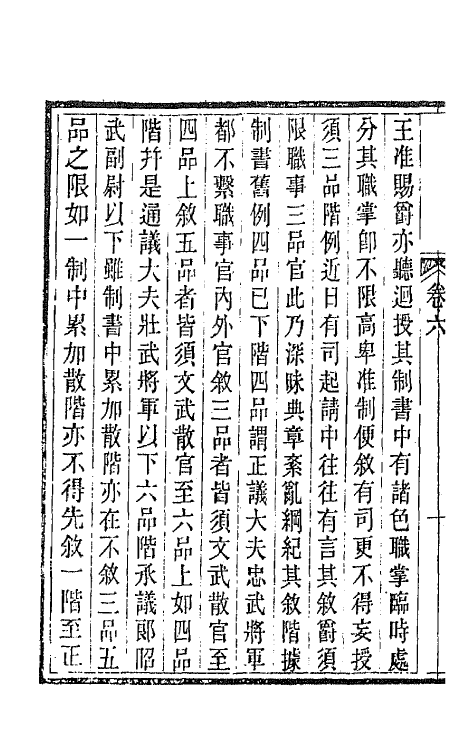 王准賜爵亦聽迴授其制書中有諸色職掌臨時處
分其職掌卽不限高卑准制便敘有司更不得妄授
須三品階例近日有司起請中往往有言其敘爵須
限職事三品官此乃深昧典章紊亂綱紀其敘階據
制書舊例四品已下階四品謂正議大夫忠武將軍
都不繫職事官內外官敘三品者皆須文武散官至
四品上敘五品者皆須文武散官至六品上如四品
階幷是通議大夫壯武將軍以下六品階承議郎昭
武副尉以下雖制書中累加散階亦在不敘三品五
品之限如一制中累加散階亦不得先敘一階至正
卷六